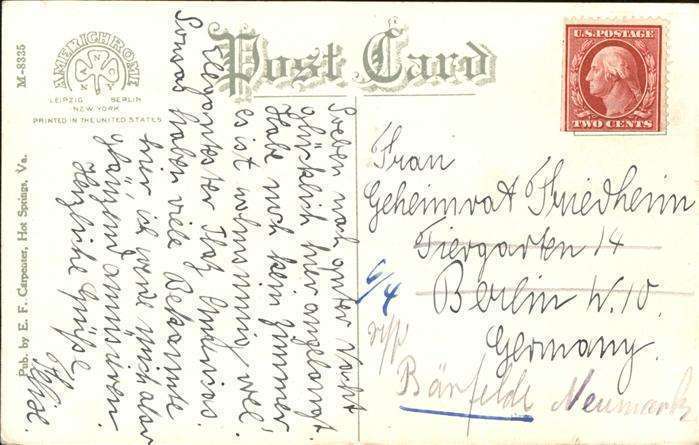 Post Card
AMERICHROME
LEIPZIG BERLIN
NEW YORK
PRINTED IN THE UNITED STATES
M-8335
Pub. by E. F. Carpenter, Hot Springs, Va.
U.S. POSTAGE
TWO CENTS
Soeben nach guter Nacht
glücklich hier angelangt.
Habe noch kein Zimmer,
es ist wahnsinnig viel
Elegantester Platz Amerikas.
Sonst haben viele Bekannte
hier ich werde mich aber
glänzend amüsieren
Herzliche Grüße
Frau
Geheimrat Friedheim
Tiergarten 14
Berlin W.10.
Germany.
6/4
Bärfelde Neumark